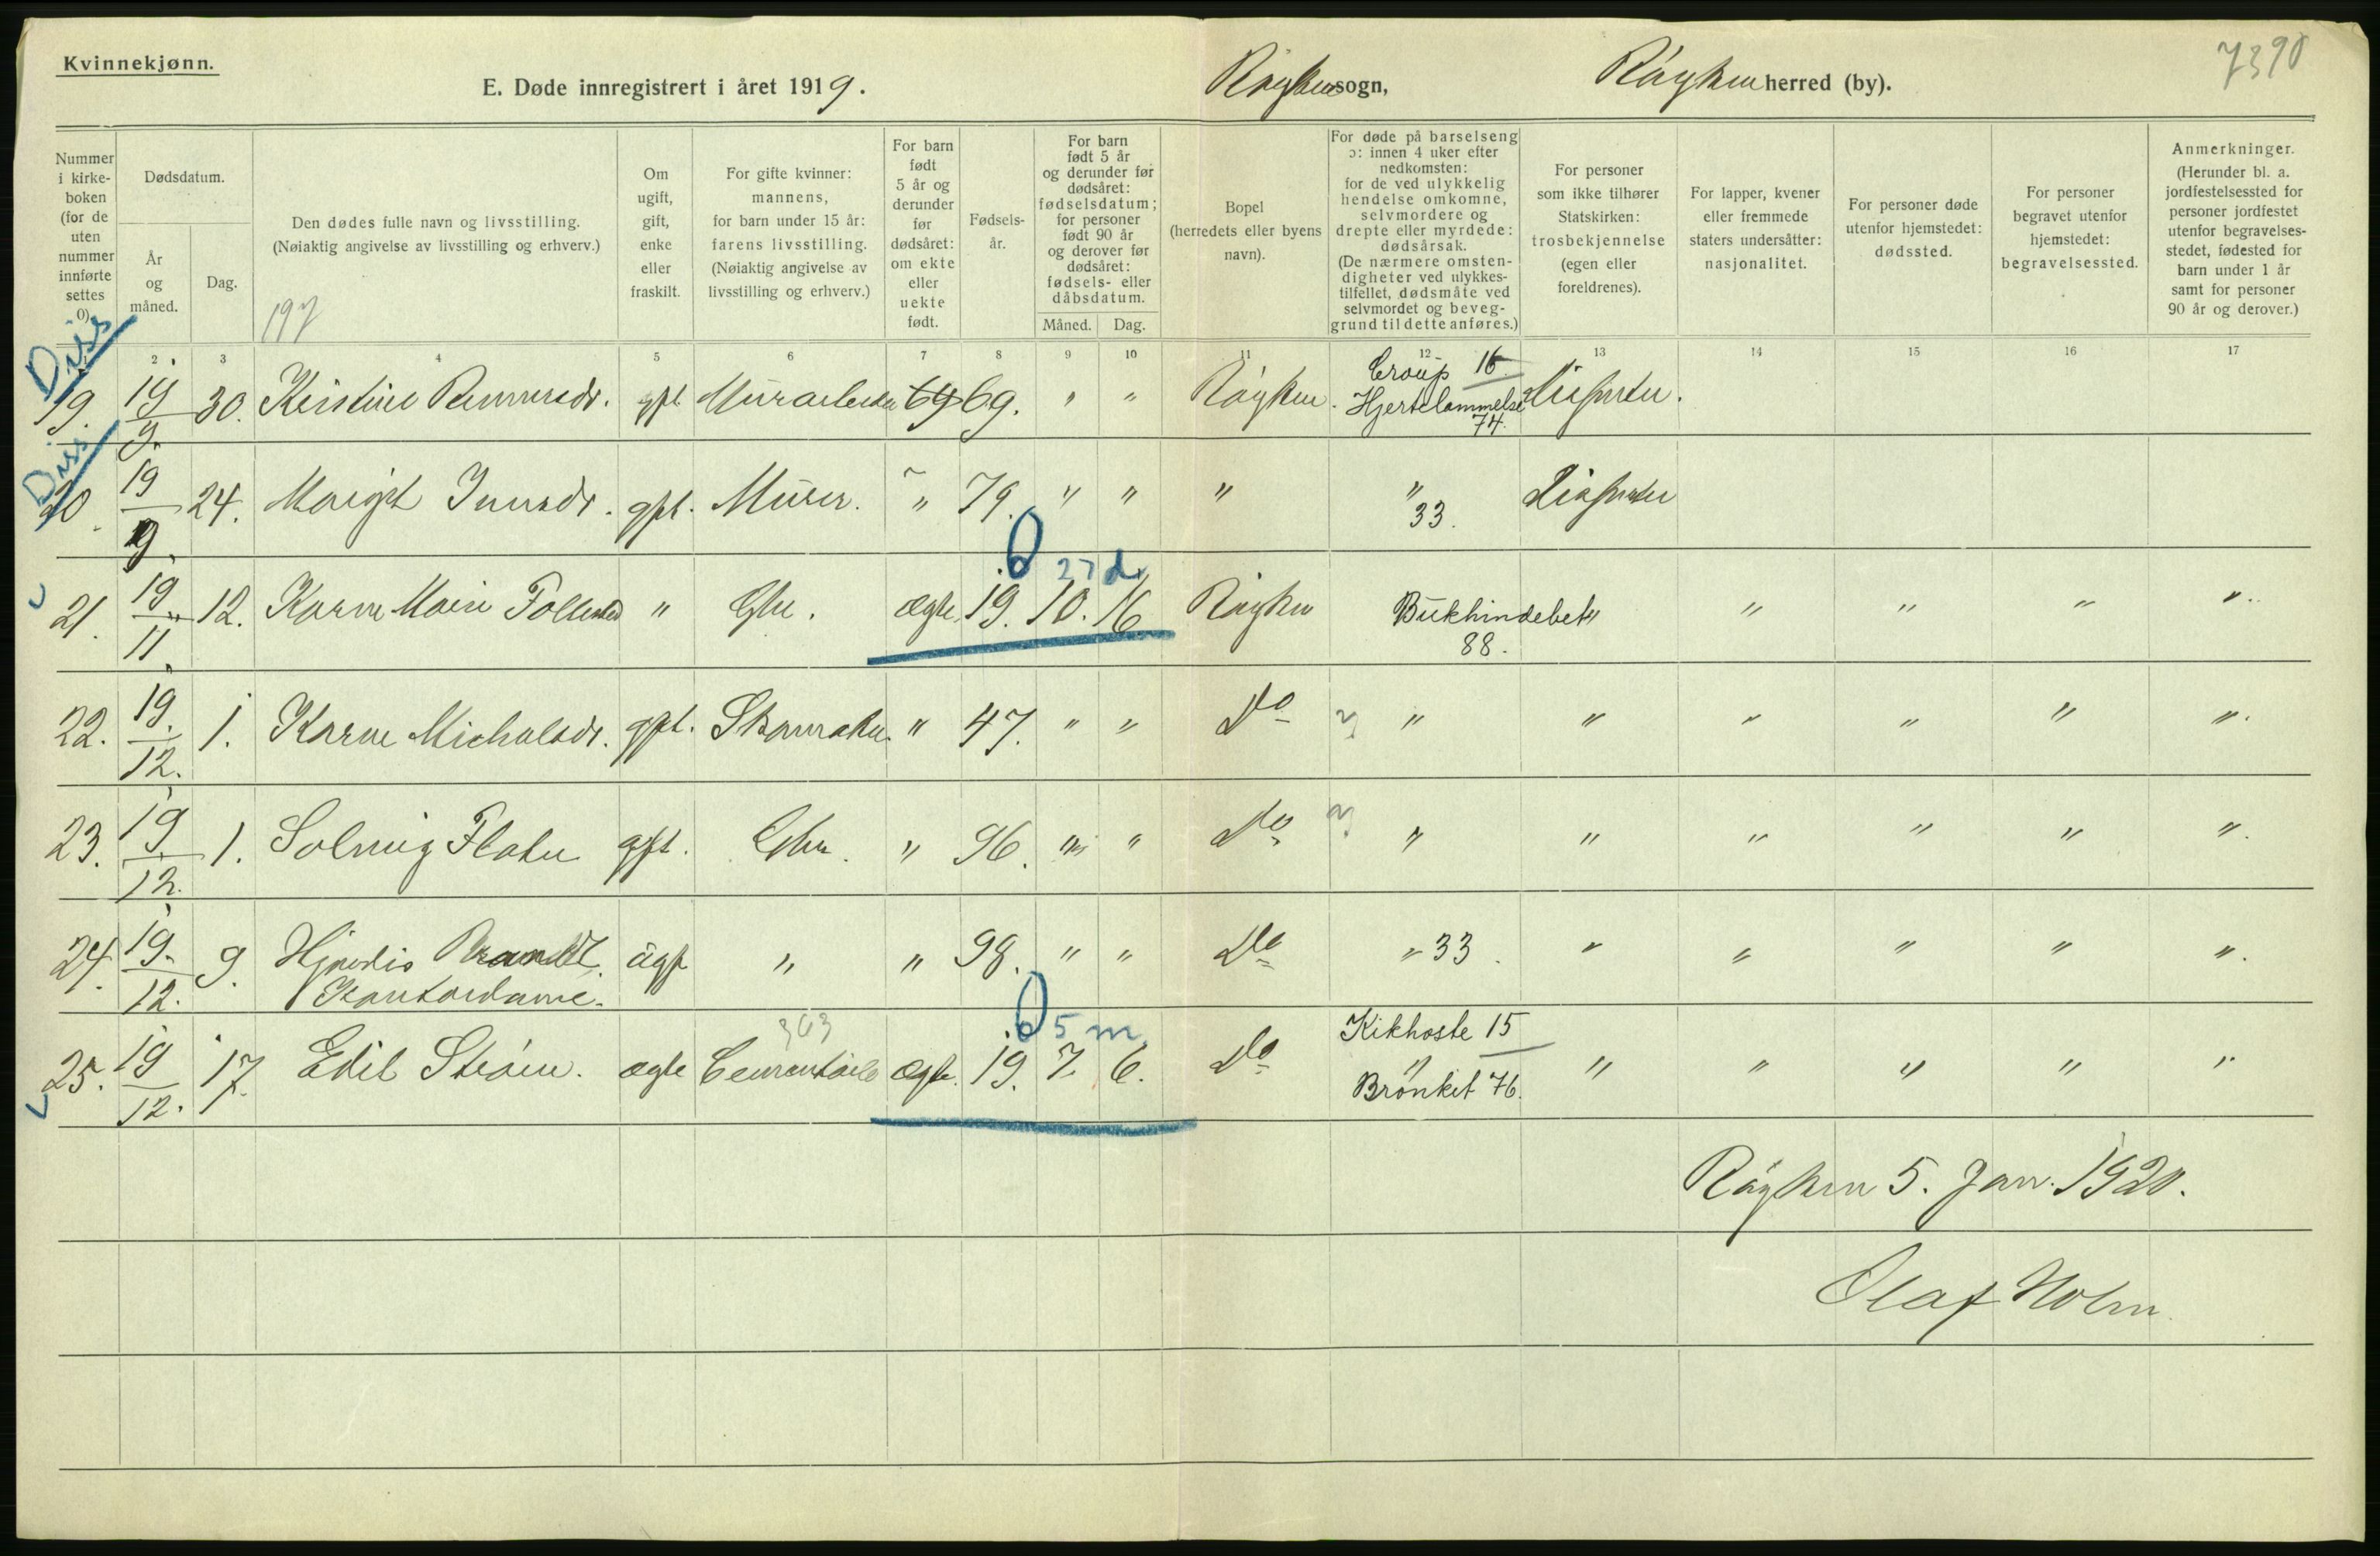 Kvinnekjønn.
7390
E. Døde innregistrert i året 1919.
Røyken sogn,
Røyken herred (by).
Nummer i kirkeboken (for de uten nummer innførte settes 0).
Dødsdatum.
År og måned.
Dag.
Den dødes fulle navn og livsstilling.
(Nøiaktig angivelse av livsstilling og erhverv.)
197
Om ugift, gift, enke eller fraskilt.
For gifte kvinner: mannens, for barn under 15 år: farens livsstilling. (Nøiaktig angivelse av livsstilling og erhverv.)
For barn født 5 år og derunder før dødsåret: om ekte eller uekte født.
Fødselsår.
For barn født 5 år og derunder før dødsåret: fødselsdatum; for personer født 90 år og derover før dødsåret: fødsels- eller dåbsdatum.
Måned.
Dag.
Bopel (herredets eller byens navn).
For døde på barselseng ɔ: innen 4 uker efter nedkomsten: for de ved ulykkelig hendelse omkomne, selvmordere og drepte eller myrdede: dødsårsak. (De nærmere omstendigheter ved ulykkestilfellet, dødsmåte ved selvmordet og beveggrund til dette anføres.)
For personer som ikke tilhører Statskirken: trosbekjennelse (egen eller foreldrenes).
For lapper, kvener eller fremmede staters undersåtter: nasjonalitet.
For personer døde utenfor hjemstedet: dødssted.
For personer begravet utenfor hjemstedet: begravelsessted.
Anmerkninger. (Herunder bl. a. jordfestelsessted for personer jordfestet utenfor begravelsesstedet, fødested for barn under 1 år samt for personer 90 år og derover.)
1 2 3 4 5 6 7 8 9 10 11 12 13 14 15 16 17
Diss
19. 19/9. 30. Kristine gft. 69 69. " " Røyken. Croup 16 Hjertelammelse 74.
Diss
20. 19/9. 24. Margit gft. Murer. " 79. " " " " 33.
6 27 d.
21. 19/11. 12. Karen Marie " Gbr. ægte 19. 10. 16 Røyken Bukhindebet 88. " " " " ".
22. 19/12. 1. Karen gft. " 47. " " Do " " " " " ".
23. 19/12. 1. Solveig Flaten gft. Gbr. " 96. " " Do " " " " " ".
24. 19/12. 9. Hjørdis Brandt. Kontordame. ugf " " 98. " " Do " 33. " " " " ".
363
6 5 m.
25. 19/12. 17. Edil Strøm. ægte ægte. 19. 7. 6. Do Kikhoste 15 " Bronkit 76. " " " " "
Røyken 5. Jan. 1920.
Olaf Holm